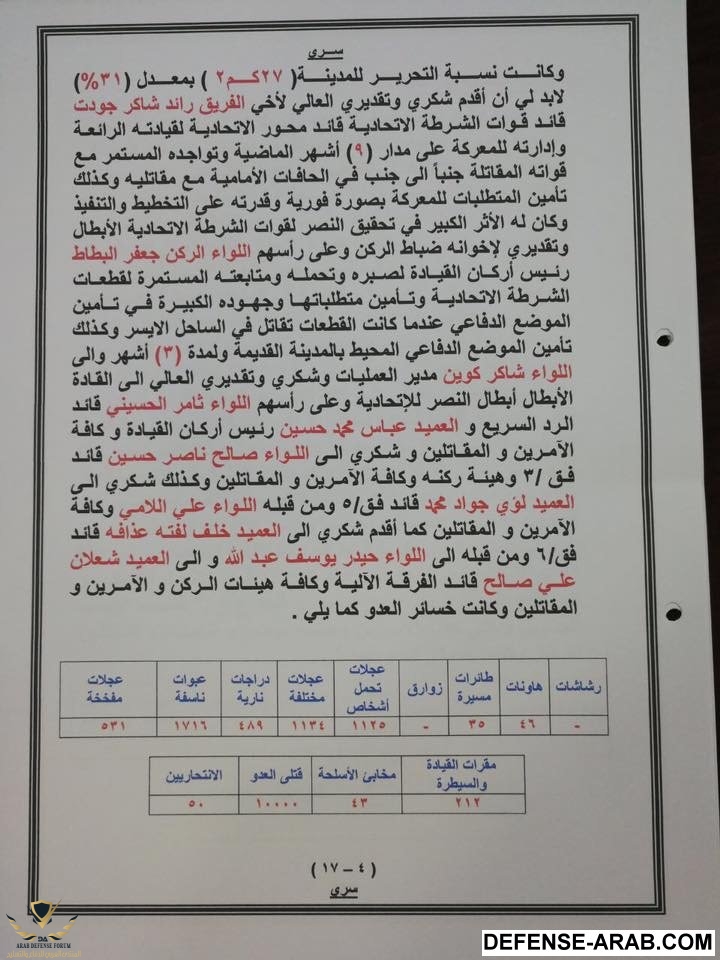 سري
وكانت نسبة التحرير للمدينة( ٢٧كم٢ ) بمعدل (٣١%)
لابد لي أن أقدم شكري وتقديري العالي لأخي الفريق رائد شاكر جودت
قائد قوات الشرطة الاتحادية قائد محور الاتحادية لقيادته الرائعة
وإدارته للمعركة على مدار (٩) أشهر الماضية وتواجده المستمر مع
قواته المقاتلة جنباً الى جنب في الحافات الأمامية مع مقاتليه وكذلك
تأمين المتطلبات للمعركة بصورة فورية وقدرته على التخطيط والتنفيذ
وكان له الأثر الكبير في تحقيق النصر لقوات الشرطة الاتحادية الأبطال
وتقديري لإخوانه ضباط الركن وعلى رأسهم اللواء الركن جعفر البطاط
رئيس أركان القيادة لصبره وتحمله ومتابعته المستمرة لقطعات
الشرطة الاتحادية وتأمين متطلباتها وجهوده الكبيرة في تأمين
الموضع الدفاعي عندما كانت القطعات تقاتل في الساحل الايسر وكذلك
تأمين الموضع الدفاعي المحيط بالمدينة القديمة ولمدة (٣) أشهر والى
اللواء شاكر كوين مدير العمليات وشكري وتقديري العالي الى القادة
الأبطال أبطال النصر للإتحادية وعلى رأسهم اللواء ثامر الحسيني قائد
الرد السريع و العميد عباس محمد حسين رئيس أركان القيادة و كافة
الآمرين و المقاتلين و شكري الى اللواء صالح ناصر حسين قائد
فق /٣ وهيئة ركنه وكافة الآمرين و المقاتلين وكذلك شكري الى
العميد لؤي جواد محمد قائد فق/٥ ومن قبله اللواء علي اللامي وكافة
الآمرين و المقاتلين كما أقدم شكري الى العميد خلف لفته عذافه قائد
فق/٦ ومن قبله الى اللواء حيدر يوسف عبد الله و الى العميد شعلان
علي صالح قائد الفرقة الآلية وكافة هيئات الركن و الآمرين و
المقاتلين وكانت خسائر العدو كما يلي .
رشاشات هاونات طائرات مسيرة زوارق عجلات تحمل أشخاص عجلات مختلفة دراجات نارية عبوات ناسفة عجلات مفخخة
- ٤٦ ٣٥ - ١١٢٥ ١١٣٤ ٤٨٩ ١٧١٦ ٥٣١
مقرات القيادة والسيطرة مخابئ الأسلحة قتلى العدو الانتحاريين
٢١٢ ٤٣ ١٠٠٠٠ ٥٠
( ٤ – ١٧ )
سري
ARAB DEFENSE FORUM
DEFENSE-ARAB.COM